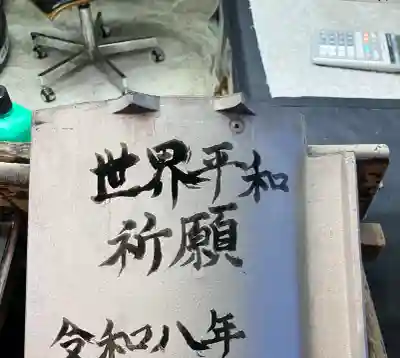 世界平和
祈願
令和八年